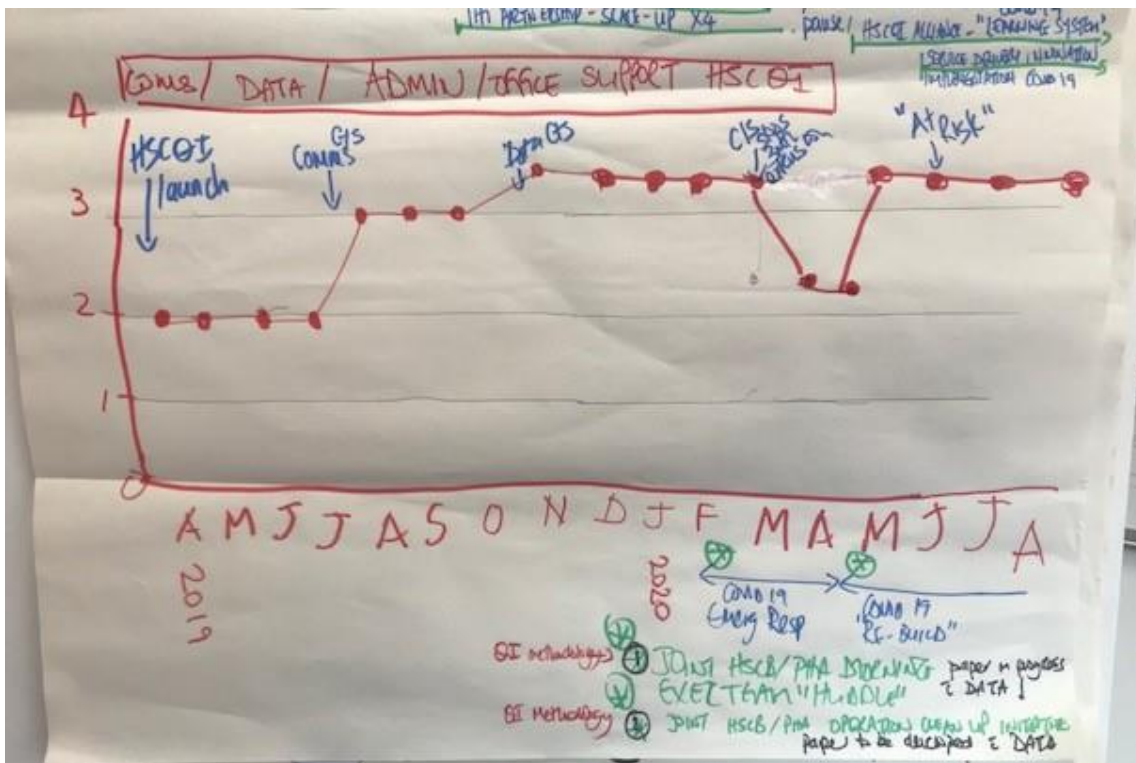 IHI PARTNERSHIP - SCALE-UP X4
pause/
HSCQI ALLIANCE - "LEARNING SYSTEM"
SERVICE DELIVERY INNOVATION
IMPLEMENTATION COVID 19
COMMS/ DATA/ ADMIN/OFFICE SUPPORT HSCQI
4
HSCQI
launch
Comms
Data
"At Risk"
3
2
1
0
A M J J A S O N D J F M A M J J A
2019
2020
COVID 19
Emerg Resp
COVID 19
"RE-BUILD"
QI methodology 1 JOINT HSCB/PHA MORNING paper in progress
EXEC TEAM "HUDDLE" DATA
QI Methodology 2 JOINT HSCB/PHA OPERATION CLEAN UP INITIATIVE
paper to be developed DATA